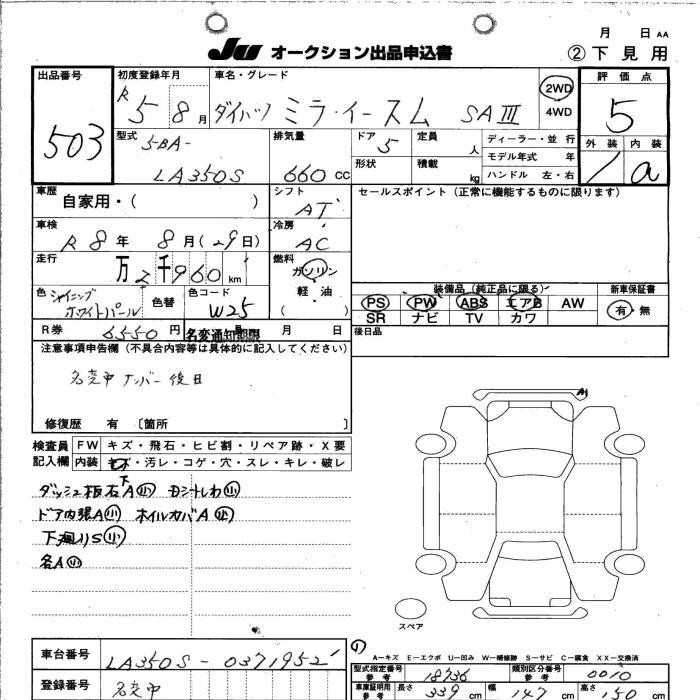 月 日 AA
JU オークション出品申込書 ②下見用
出品番号 初度登録年月 車名・グレード 評価点
503 R 5 8月 ダイハツ ミラ・イースム SAⅢ 2WD 4WD 5
型式 5BA- 排気量 ドア 5 定員 人 ディーラー・並行 外装 内装
LA350S 660 CC 形状 積載 kg モデル年式 年 1 a
ハンドル 左・右
車歴 自家用・( ) シフト AT セールスポイント(正常に機能するものに限ります)
車検 R 8年 8月(29日) 冷房 AC
走行 万 2千960 km 燃料 ガソリン 軽・油 ( )
装備品(純正品に限る) 新車保証書
PS PW ABS エアB AW 有・無
SR ナビ TV カワ
色 シャイニングホワイトパール 色替 色コード W25
R券 6550円 名変通知期限 月 日 後日品
注意事項申告欄(不具合内容等は具体的に記入してください)
名変中 ナンバー後日
修復歴 有 〔箇所 〕
検査員 FW キズ・飛石・ヒビ割・リペア跡・X要
記入欄 内装 キズ・汚レ・コゲ・穴・スレ・キレ・破レ
ダッシュ板右下A小 Dシートしわ小
ドア内張A小 ホイルカバA小
下廻りS小
各A小
A1
スペア
A-キズ E-エクボ U-凹み W-補修跡 S-サビ C-腐食 XX-交換済
車台番号 LA350S-0371952
登録番号 名変中
型式指定番号 参考 18736 類別区分番号 参考 0010
車庫証明用 参考 長さ 339 cm 幅 147 cm 高さ 150 cm